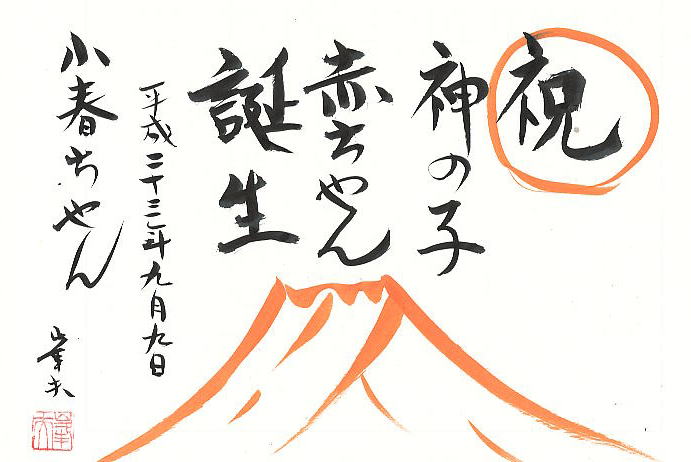 祝
神の子
赤ちゃん
誕生
平成二十三年九月九日
小春ちゃん
峯夫